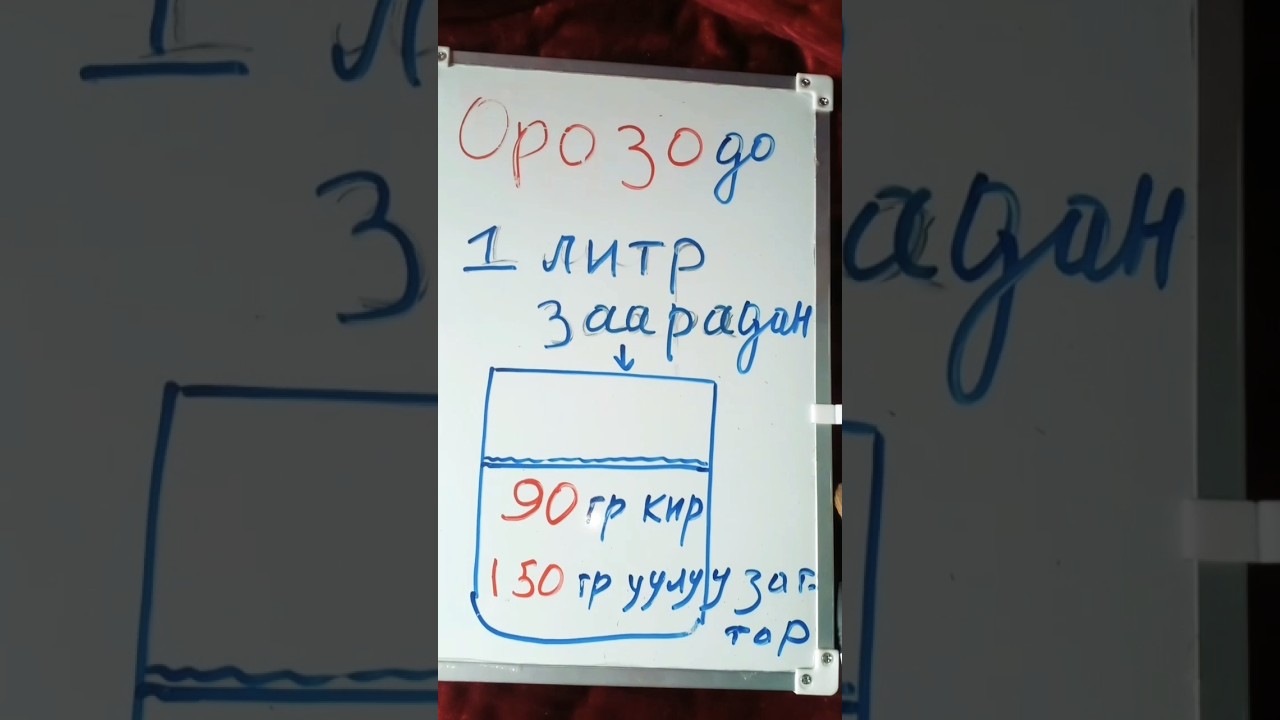 Орозодо
1 литр
заарадан
90 гр кир
150 гр уулуу зат-
тар